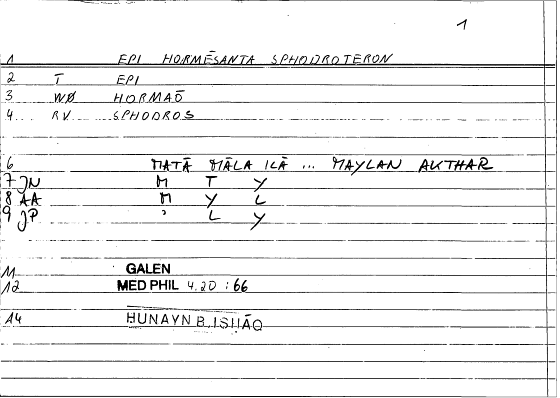 1
1 EPI HORMĒSANTA SPHODROTERON
2 T EPI
3 WØ HORMAŌ
4 RV SPHODROS
6 MATĀ MĀLA ILĀ ... MAYLAN AKTHAR
7 JN M T Y
8 AA M Y L
9 JP ' L Y
11 GALEN
12 MED PHIL 4.20 : 66
14 HUNAYN B. ISḤĀQ